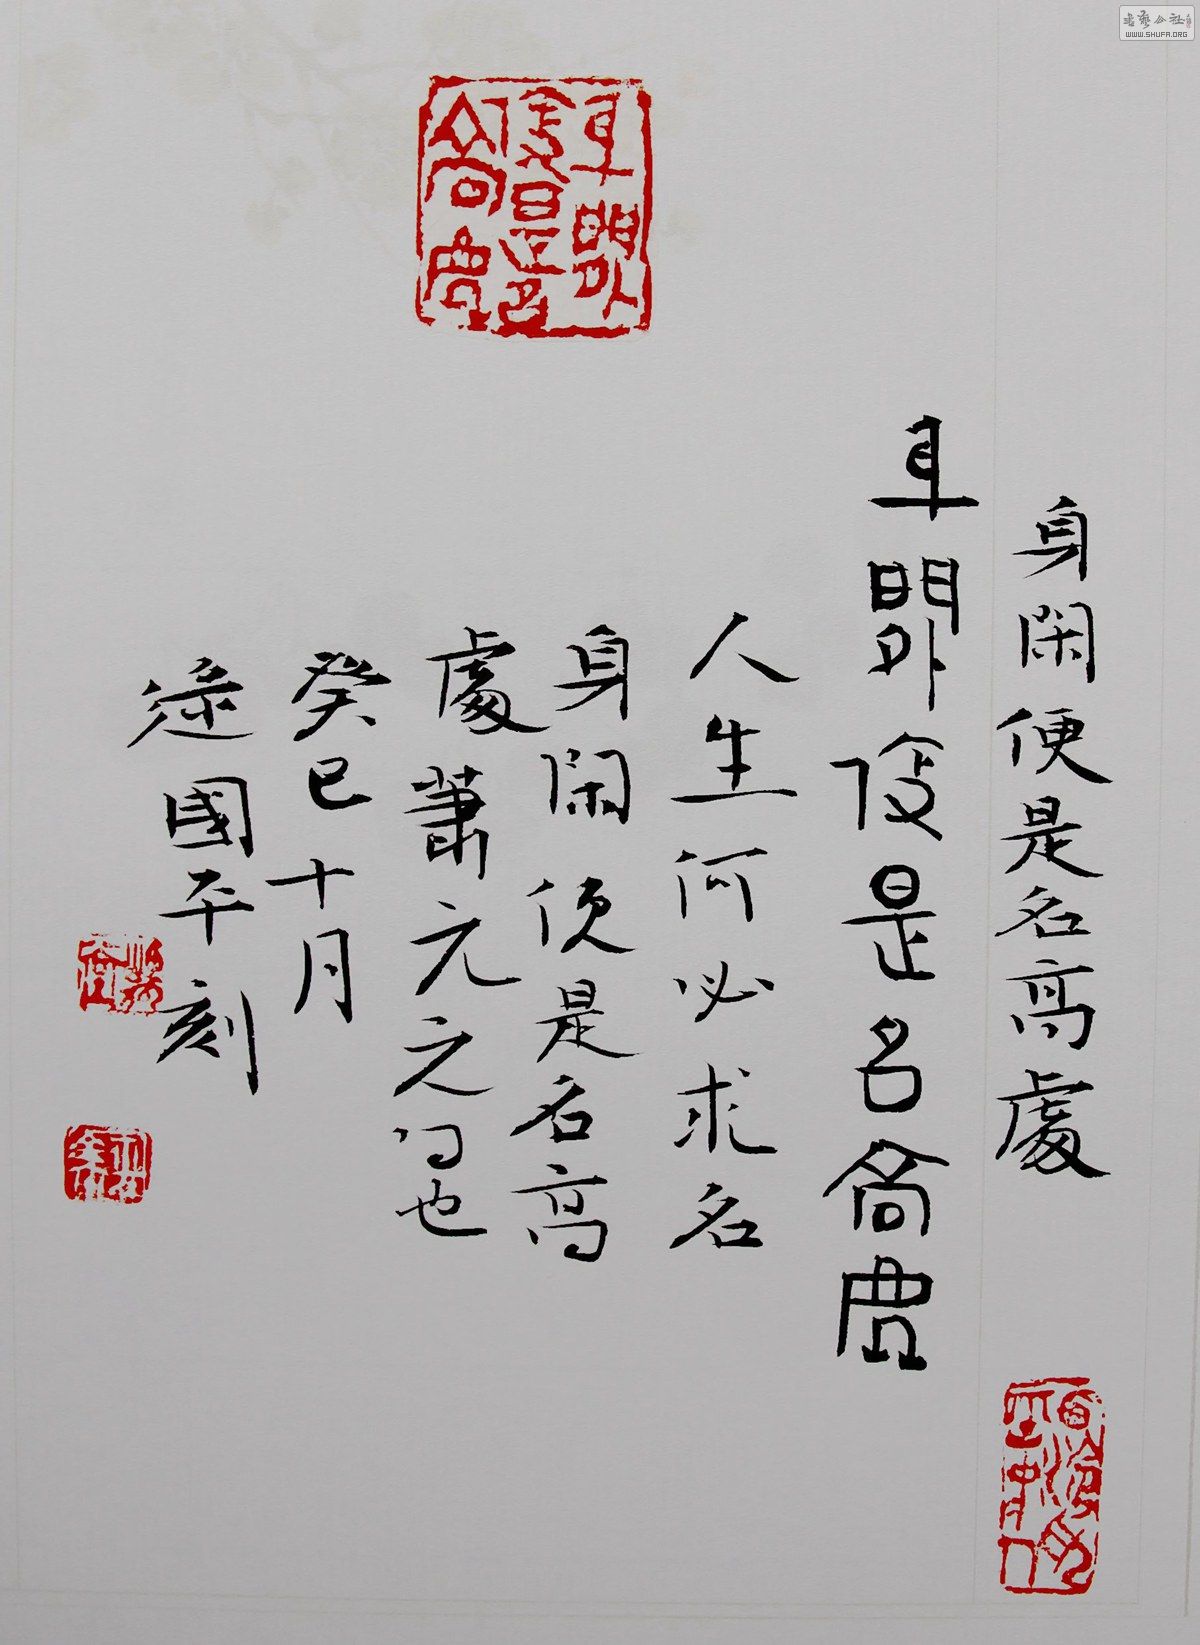 身閑便是名高處
身閒便是名高處
人生何必求名
身閑便是名高
處蕭元之句也
癸巳十月
逯國平刻
身閒便是名高處
WWW.SHUFA.ORG